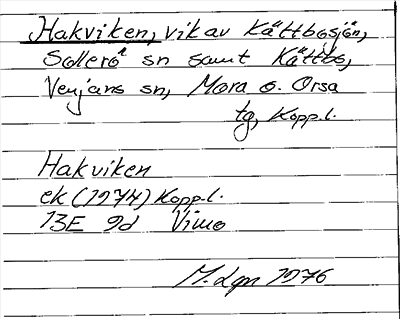 Hakviken, vik av Kättbosjön,
Sollerö sn samt Kättbo,
Venjans sn, Mora o. Orsa
tg, Kopp.l.
Hakviken
ek (1974) Kopp.l.
13E 9d Vimo
M. Lgn 1976